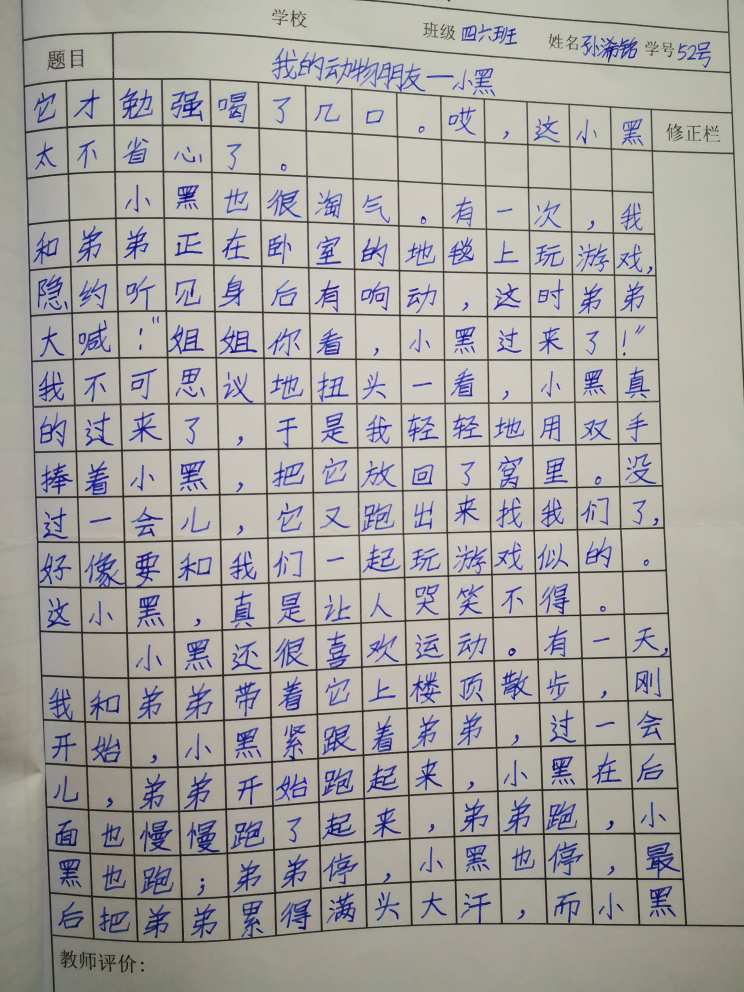 学校 班级 四六班 姓名 孙浠铭 学号 52号
题目 我的动物朋友—小黑
它才勉强喝了几口。哎,这小黑 修正栏
太不省心了。
小黑也很淘气。有一次,我
和弟弟正在卧室的地毯上玩游戏,
隐约听见身后有响动,这时弟弟
大喊!"姐姐你看,小黑过来了!"
我不可思议地扭头一看,小黑真
的过来了,于是我轻轻地用双手
捧着小黑,把它放回了窝里。没
过一会儿,它又跑出来找我们了,
好像要和我们一起玩游戏似的。
这小黑,真是让人哭笑不得。
小黑还很喜欢运动。有一天,
我和弟弟带着它上楼顶散步,刚
开始,小黑紧跟着弟弟,过一会
儿,弟弟开始跑起来,小黑在后
面也慢慢跑了起来,弟弟跑,小
黑也跑;弟弟停,小黑也停,最
后把弟弟累得满头大汗,而小黑
教师评价: